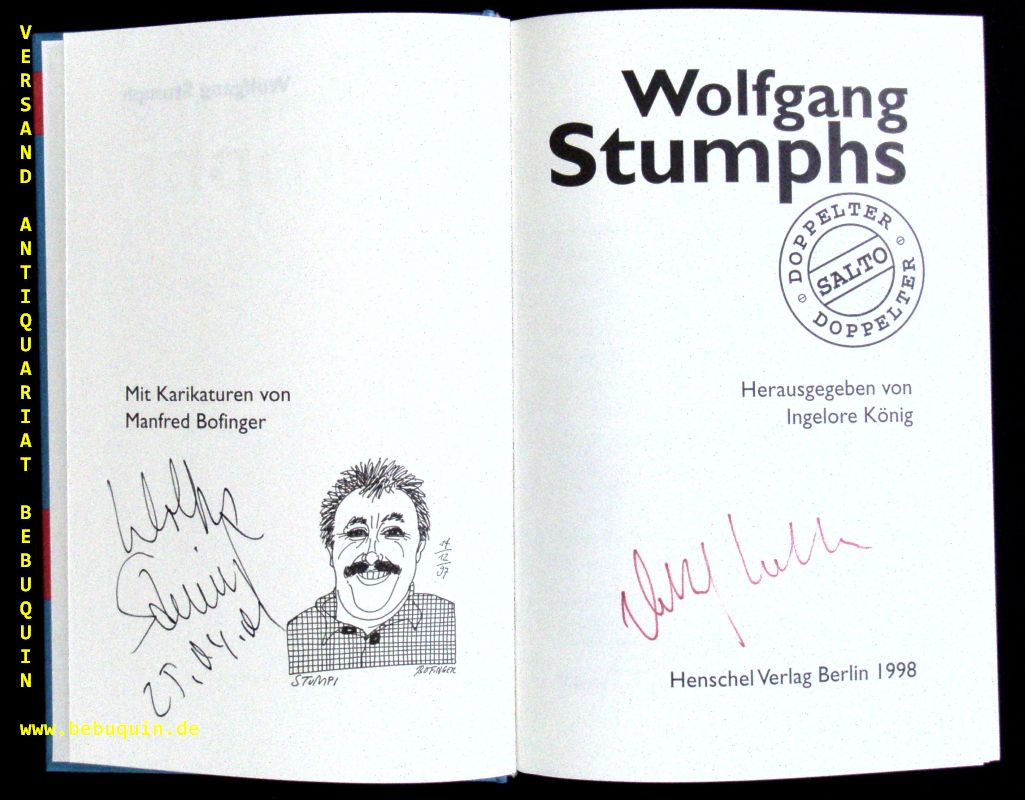 VERSAND ANTIQUARIAT BEBUQUIN
www.bebuquin.de
Mit Karikaturen von
Manfred Bofinger
14
12
97
STUMPI
BOFINGER
Wolfgang
Stumphs
DOPPELTER
SALTO
DOPPELTER
Herausgegeben von
Ingelore König
Henschel Verlag Berlin 1998